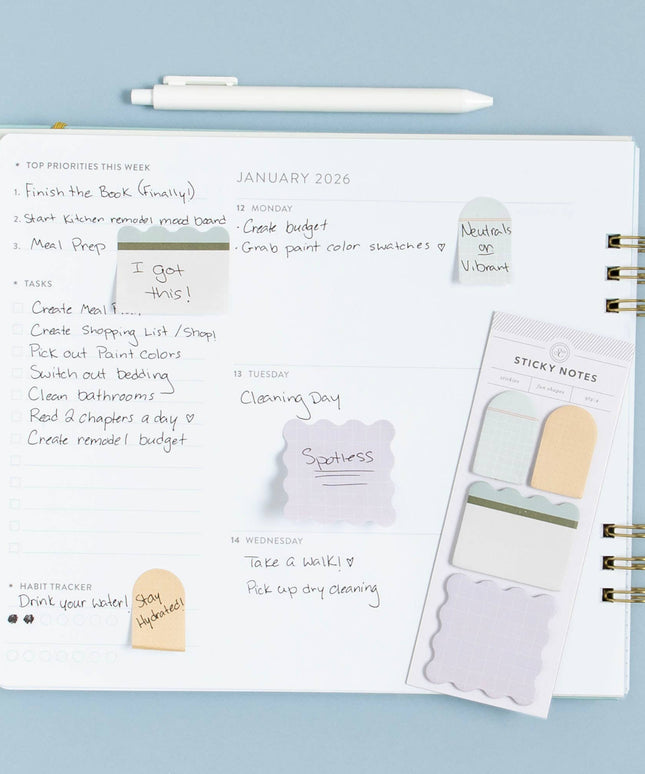 * TOP PRIORITIES THIS WEEK
1. Finish the Book (Finally!)
2. Start Kitchen remodel mood board
3. Meal Prep
I got
this!
* TASKS
Create Meal
Create Shopping List / Shop!
Pick out Paint colors
Switch out bedding
Clean bathrooms
Read 2 chapters a day ♡
Create remodel budget
* HABIT TRACKER
Drink your water!
Stay
Hydrated!
JANUARY 2026
12 MONDAY
· Create budget
· Grab paint color swatches ♡
Neutrals
or
Vibrant
13 TUESDAY
Cleaning Day
Spotless
14 WEDNESDAY
Take a walk! ♡
Pick up dry cleaning
STICKY NOTES
stickies fun shapes